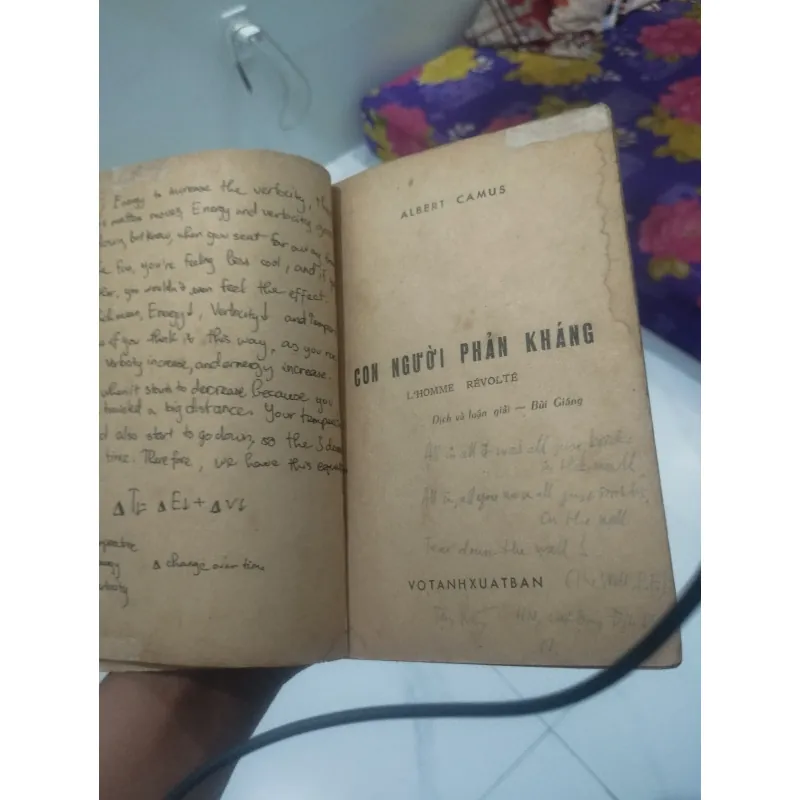 Energy to increase the verlocity, th
matter moves, Energy and verlocity
down, but know, when you sweat far out
fan, you're feeling less cool, and if y
you wouldn't even feel the effect.
Energy↓, Verlocity↓ and temper
if you think it this way, as you run
verlocity increase, and energy increase.
when it starts to decrease because you
traveled a big distance. Your tempera
d also start to go down, so the 3 de
time. Therefore, we have this equa
Δ T↓= Δ E↓ + Δ v↓
Δ change over time
ALBERT CAMUS
CON NGƯỜI PHẢN KHÁNG
L'HOMME RÉVOLTÉ
Dịch và luận giải — Bùi Giáng
All in all it was all just bricks
in the wall
All in all you were all just bricks
on the wall
Tear down the wall !
VOTANHXUATBAN